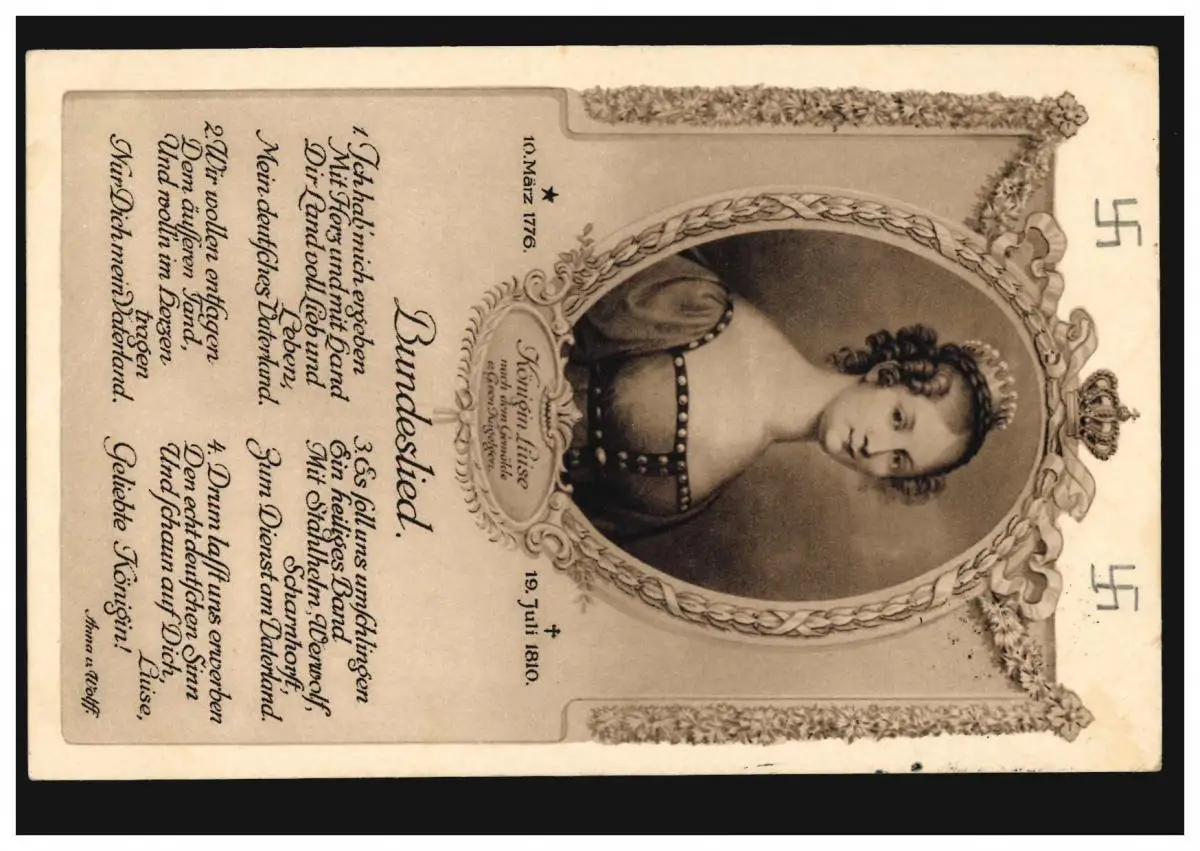 ★
10. März 1776.
✝
19. Juli 1810.
Königin Luise
nach dem Gemälde
Bundeslied.
1. Ich hab' mich ergeben
Mit Herz und mit Hand
Dir Land voll Lieb' und
Leben,
Mein deutsches Vaterland.
2. Wir wollen entsagen
Dem äußeren Tand,
Und woll'n im Herzen
tragen
Nur Dich mein Vaterland.
3. Es soll uns umschlingen
Ein heiliges Band
Mit Stahlhelm, Werwolf,
Scharnhorst,
Zum Dienst am Vaterland.
4. Drum lasst uns erwerben
Den echt deutschen Sinn
Und schaun auf Dich,
Luise,
Geliebte Königin!
Anna v. Wolff.